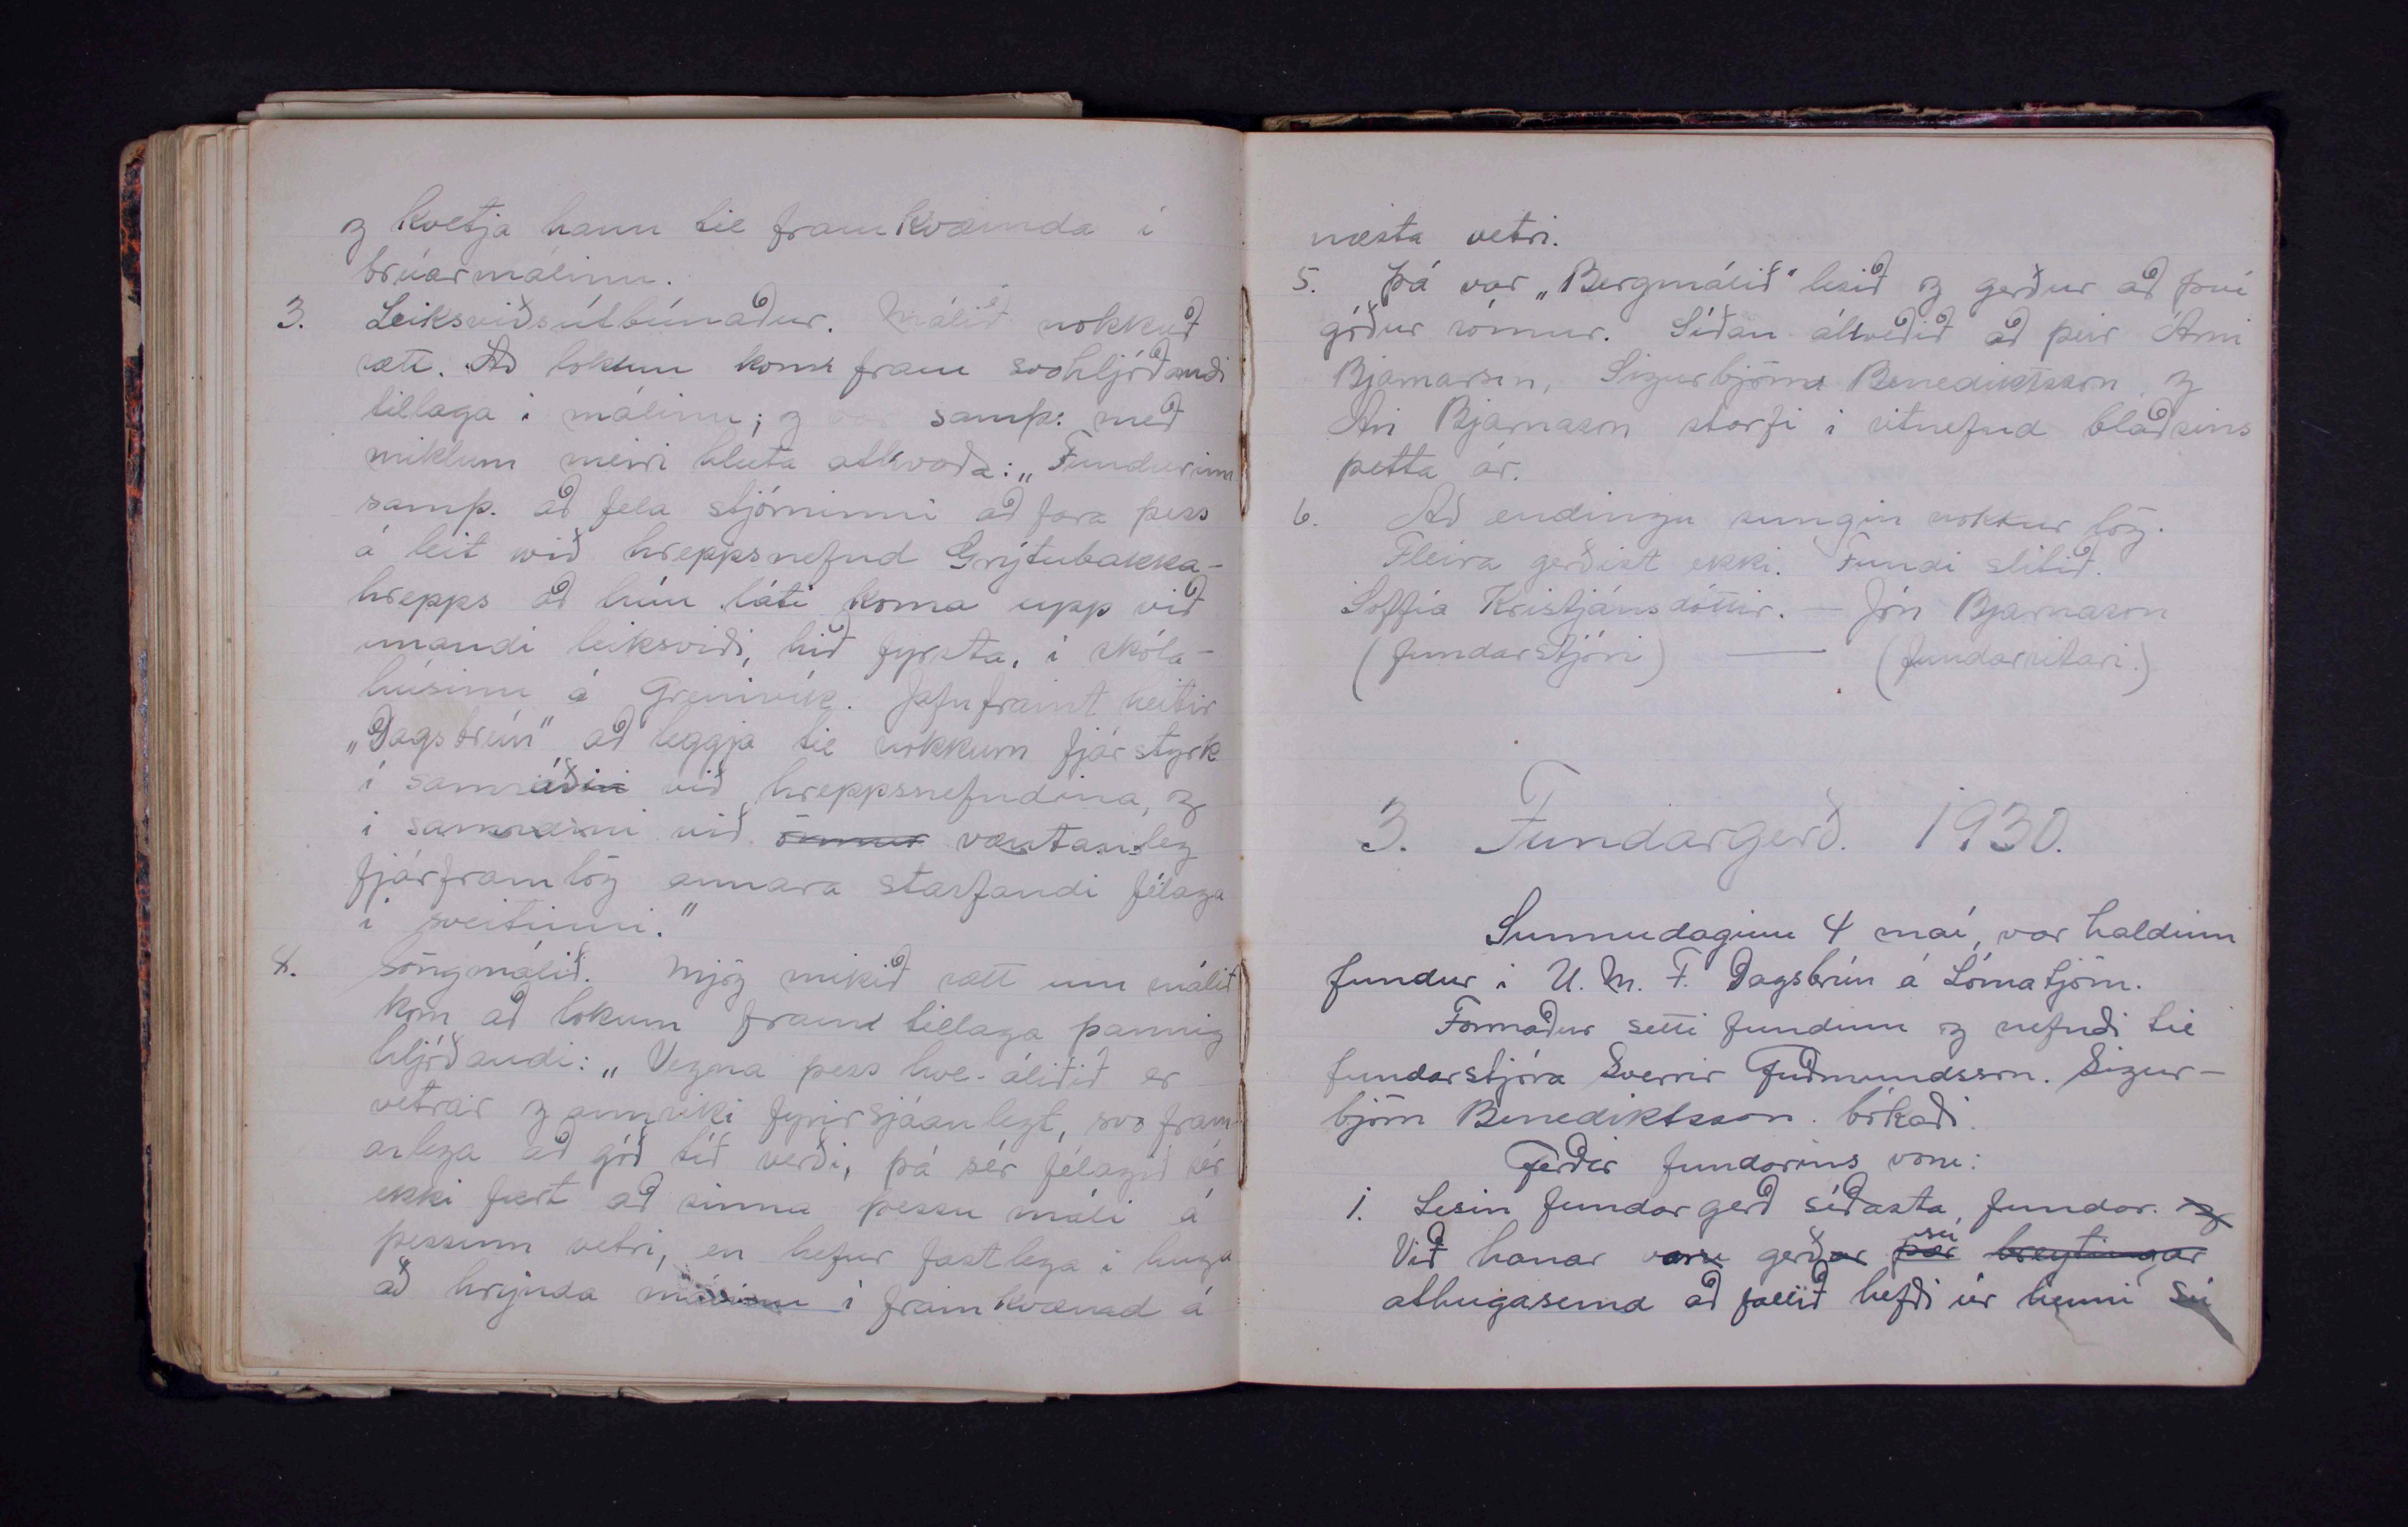 og hvetja hann til framkvæmda í
brúarmálinu.
3. Leiksviðsútbúnaður. Málið nokkuð
rætt. Að lokum kom fram svohljóðandi
tillaga í málinu; og var samþ: með
miklum meiri hluta atkvæða: „Fundurinn
samþ. að fela stjórninni að fara þess
á leit við hreppsnefnd Grýtubakka-
hrepps að hún láti koma upp við
unandi leiksviði, hið fyrsta, í skóla-
húsinu á Grenivík. Jafnframt heitir
„Dagsbrún" að leggja til nokkurn fjárstyrk
í samráði við hreppsnefndina, og
í samræmi við önnur væntanleg
fjárframlög annara starfandi félaga
í sveitinni."
4. Söngmálið. Mjög mikið rætt um málið
kom að lokum fram tillaga þannig
hljóðandi: „Vegna þess hve áliðið er
vetrar og annríki fyrirsjáanlegt, svo fram-
arlega að góð tíð verði, þá sér félagið sér
ekki fært að sinna þessu máli á
þessum vetri, en hefur fastlega í huga
að hrynda málinu í framkvæmd á
næsta vetri.
5. Þá var „Bergmálið" lesið og gerður að því
góður rómur. Síðan ákveðið að þeir Árni
Bjarnarson, Sigurbjörn Benediktsson og
Ari Bjarnason starfi í ritnefnd blaðsins
þetta ár.
6. Að endingu sungin nokkur lög.
Fleira gerðist ekki. Fundi slitið.
Soffía Kristjánsdóttir. — Jón Bjarnason
(fundarstjóri) — (fundarritari.)
3. Fundargerð. 1930.
Sunnudaginn 4 maí, var haldinn
fundur í U. M. F. Dagsbrún á Lómatjörn.
Formaður setti fundinn og nefndi til
fundarstjóra Sverrir Guðmundsson. Sigur-
björn Benediktsson bókaði.
Gerðir fundarins voru:
1. Lesin fundargerð síðasta fundar. og
sú
Við hanar var gerðar þær breytingar
athugasemd að fallið hefði úr henni sú